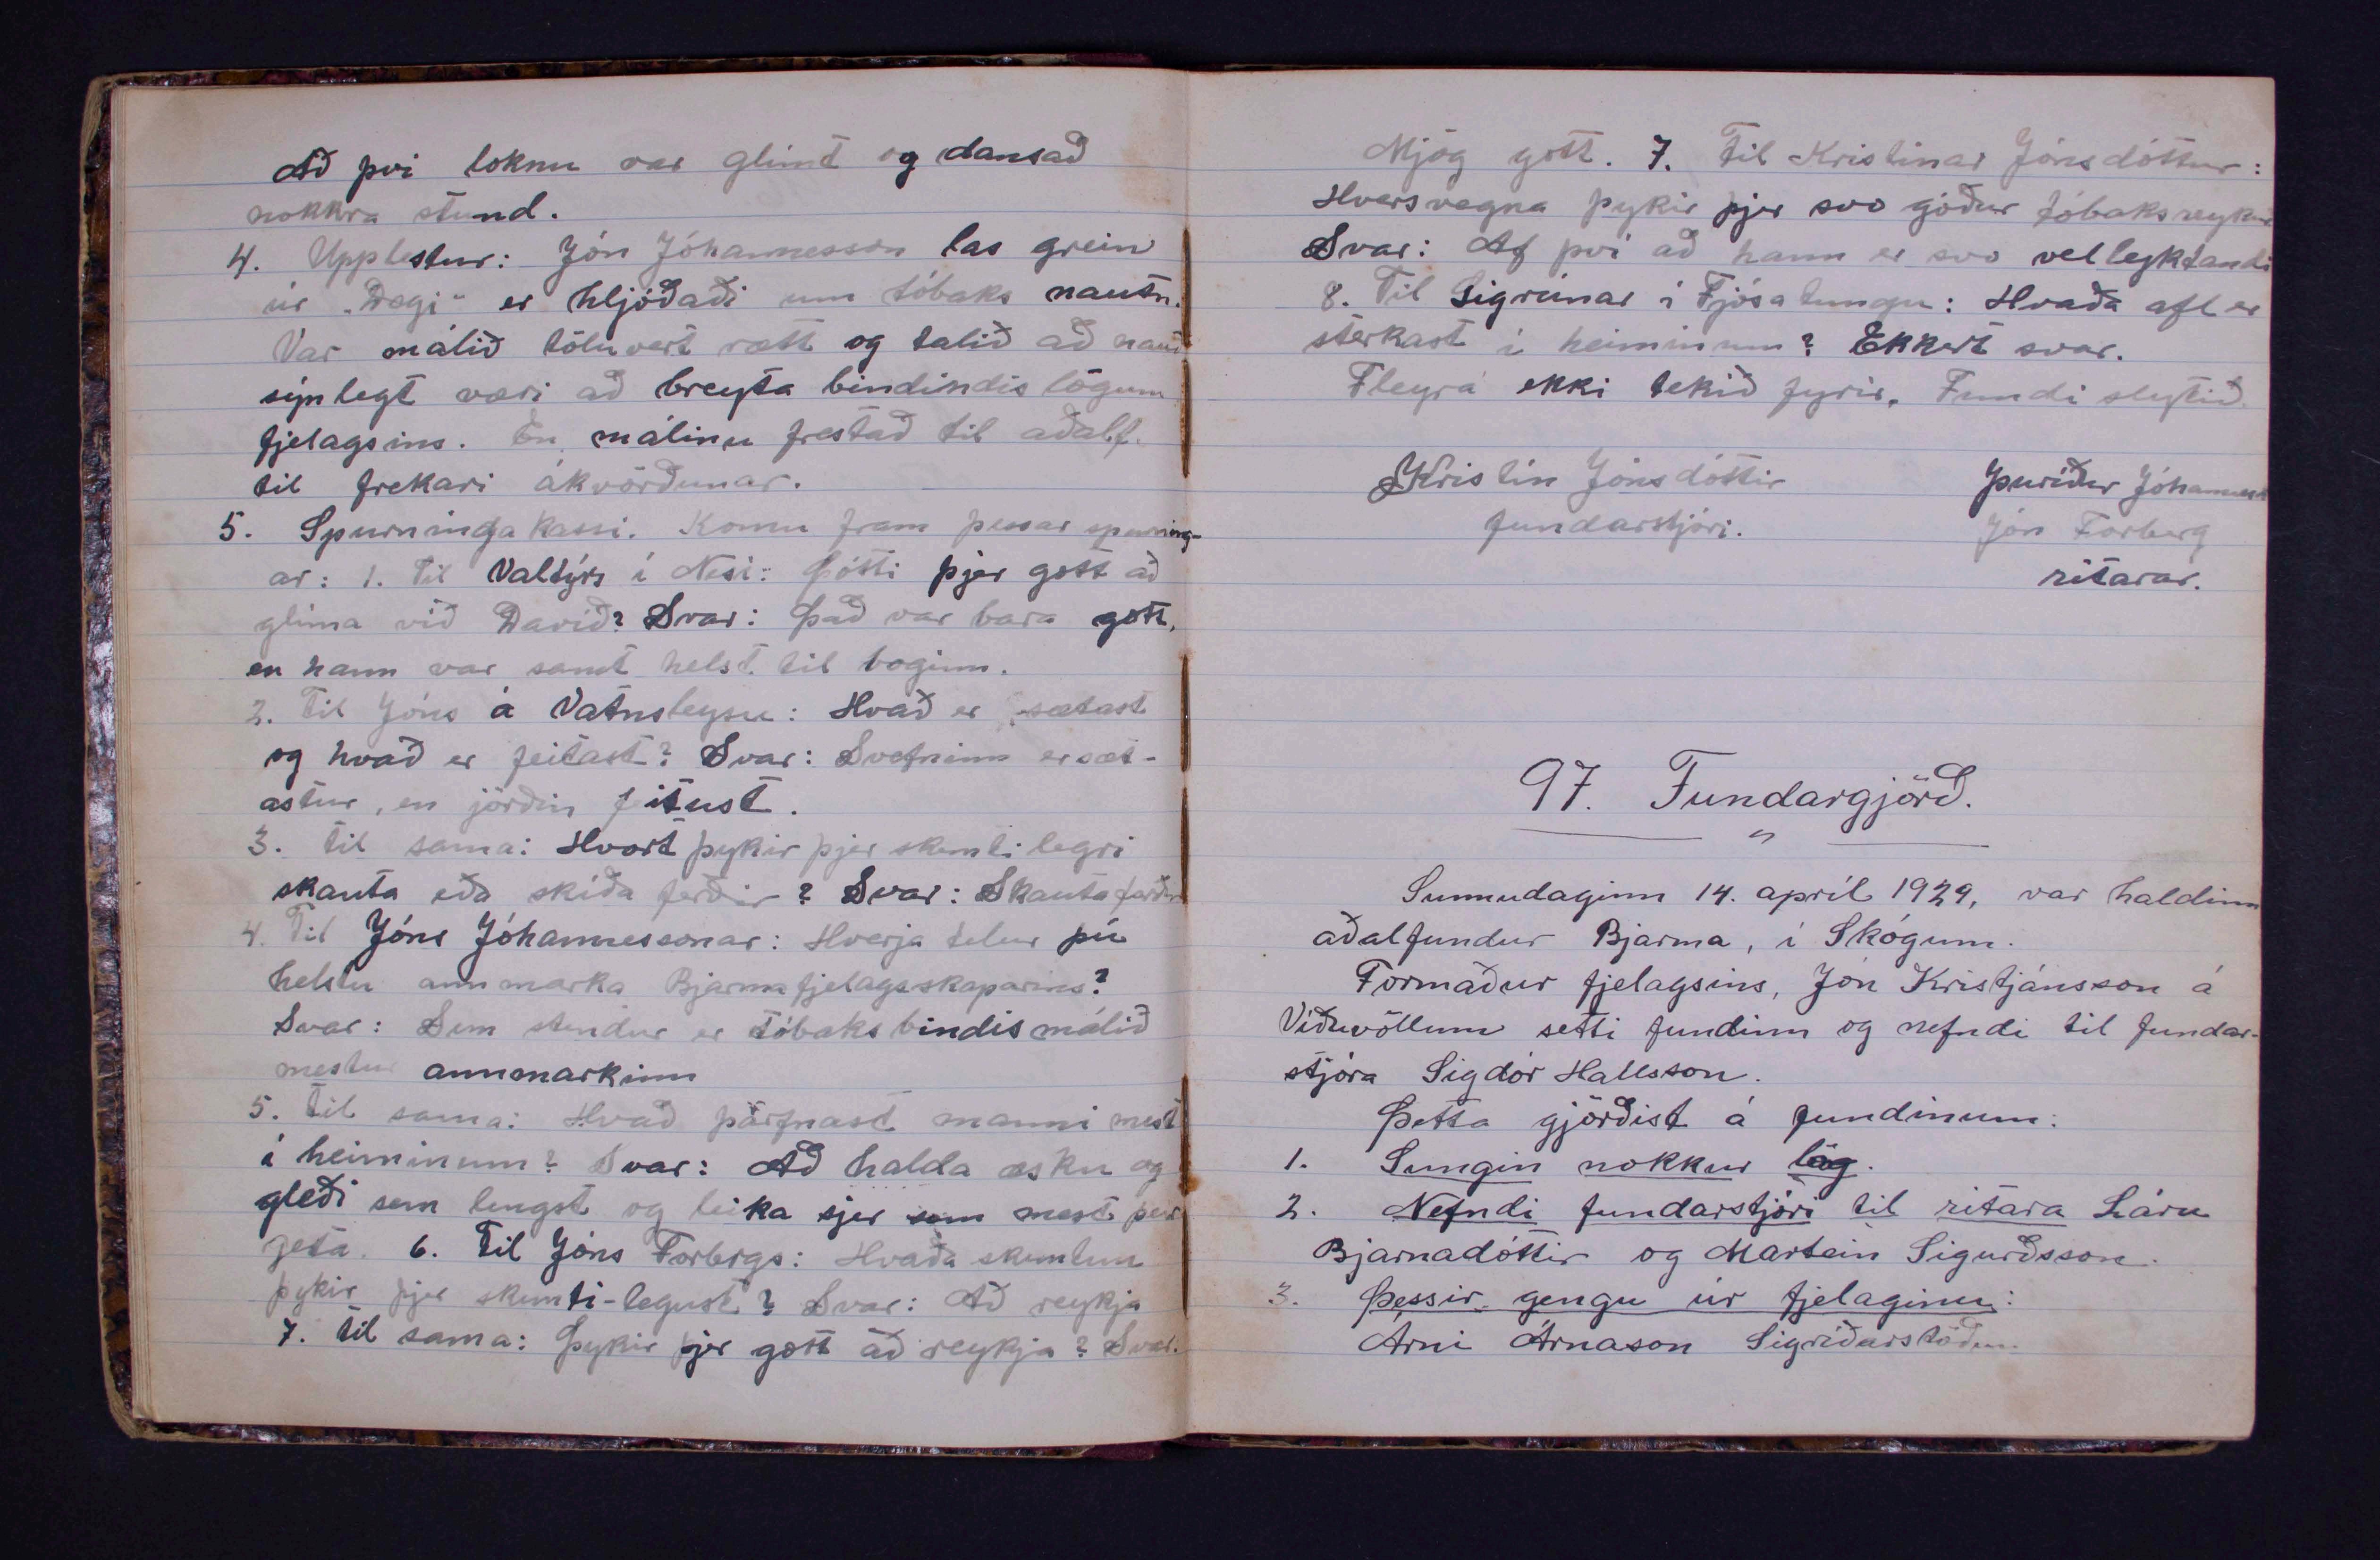 Að því loknu var glímt og dansað
nokkra stund.
4. Upplestur: Jón Jóhannesson las grein
úr „Degi" er hljóðaði um tóbaks nautn.
Var málið töluvert rætt og talið að nauð
synlegt væri að breyta bindindis lögum
fjelagsins. En málinu frestað til aðalf.
til frekari ákvörðunar.
5. Spurningakassi. Komu fram þessar spurning-
ar: 1. Til Valtýrs í Nesi: Þótti þjer gott að
glíma við Davíð? Svar: Það var bara gott,
en hann var samt helst til boginn.
2. Til Jóns á Vatnsleysu: Hvað er sætast
og hvað er feitast? Svar: Svefninn er sæt-
astur, en jörðin feitust.
3. Til sama: Hvort þykir þjer skemtilegri
skauta eða skíða ferðir? Svar: Skautaferðir
4. Til Jóns Jóhannessonar: Hverja telur þú
helstu annmarka Bjarmafjelagsskaparins?
Svar: Sem stendur er tóbaksbindismálið
mestur annmarkinn
5. Til sama: Hvað þarfnast manni mest
í heiminum? Svar: Að halda æsku og
gleði sem lengst og leika sjer sem mest þeir
geta. 6. Til Jóns Forbergs: Hvaða skemtun
þykir þjer skemti-legust? Svar: Að reykja
7. Til sama: Þykir þjer gott að reykja? Svar.
Mjög gott. 7. Til Kristínar Jónsdóttur:
Hversvegna þykir þjer svo góður tóbaksreykur
Svar: Af því að hann er svo vellyktandi
8. Til Sigrúnar í Fjósatungu: Hvaða afl er
sterkast í heiminum? Ekkert svar.
Fleyra ekki tekið fyrir. Fundi slytið.
Kristín Jónsdóttir
fundarstjóri.
Þuríður Jóhannesd
Jón Forberg
ritarar.
97. Fundargjörð.
Sunnudaginn 14. apríl 1929, var haldinn
aðalfundur Bjarma, í Skógum.
Formaður fjelagsins, Jón Kristjánsson á
Víðuvöllum setti fundinn og nefndi til fundar-
stjóra Sigdór Hallsson.
Þetta gjörðist á fundinum:
1. Sungin nokkur lög.
2. Nefndi fundarstjóri til ritara Láru
Bjarnadóttir og Martein Sigurðsson.
3. Þessir gengu úr fjelaginu:
Arni Árnason Sigríðarstöðum